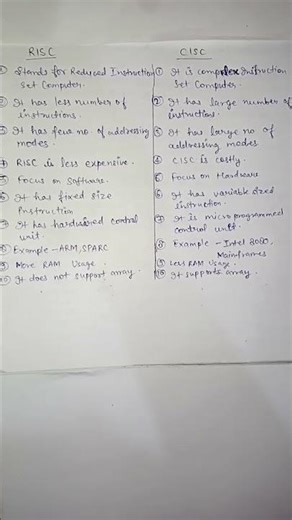 RISC
① Stands for Reduced Instruction
Set Computer.
② It has less number of
instructions.
③ It has few no. of addressing
modes.
④ RISC is less expensive.
⑤ Focus on Software.
⑥ It has fixed size
Instruction
⑦ It has hardwired control
unit.
⑧ Example - ARM, SPARC
⑨ More RAM Usage.
⑩ It does not support array.
CISC
① It is complex Instruction
Set Computer.
② It has large number of
instructions.
③ It has large no of
addressing modes
④ CISC is costly.
⑤ Focus on Hardware
⑥ It has variable sized
instruction.
⑦ It is microprogrammed
control unit.
⑧ Example - Intel
Mainframes
⑨ Less RAM Usage.
⑩ It supports array.